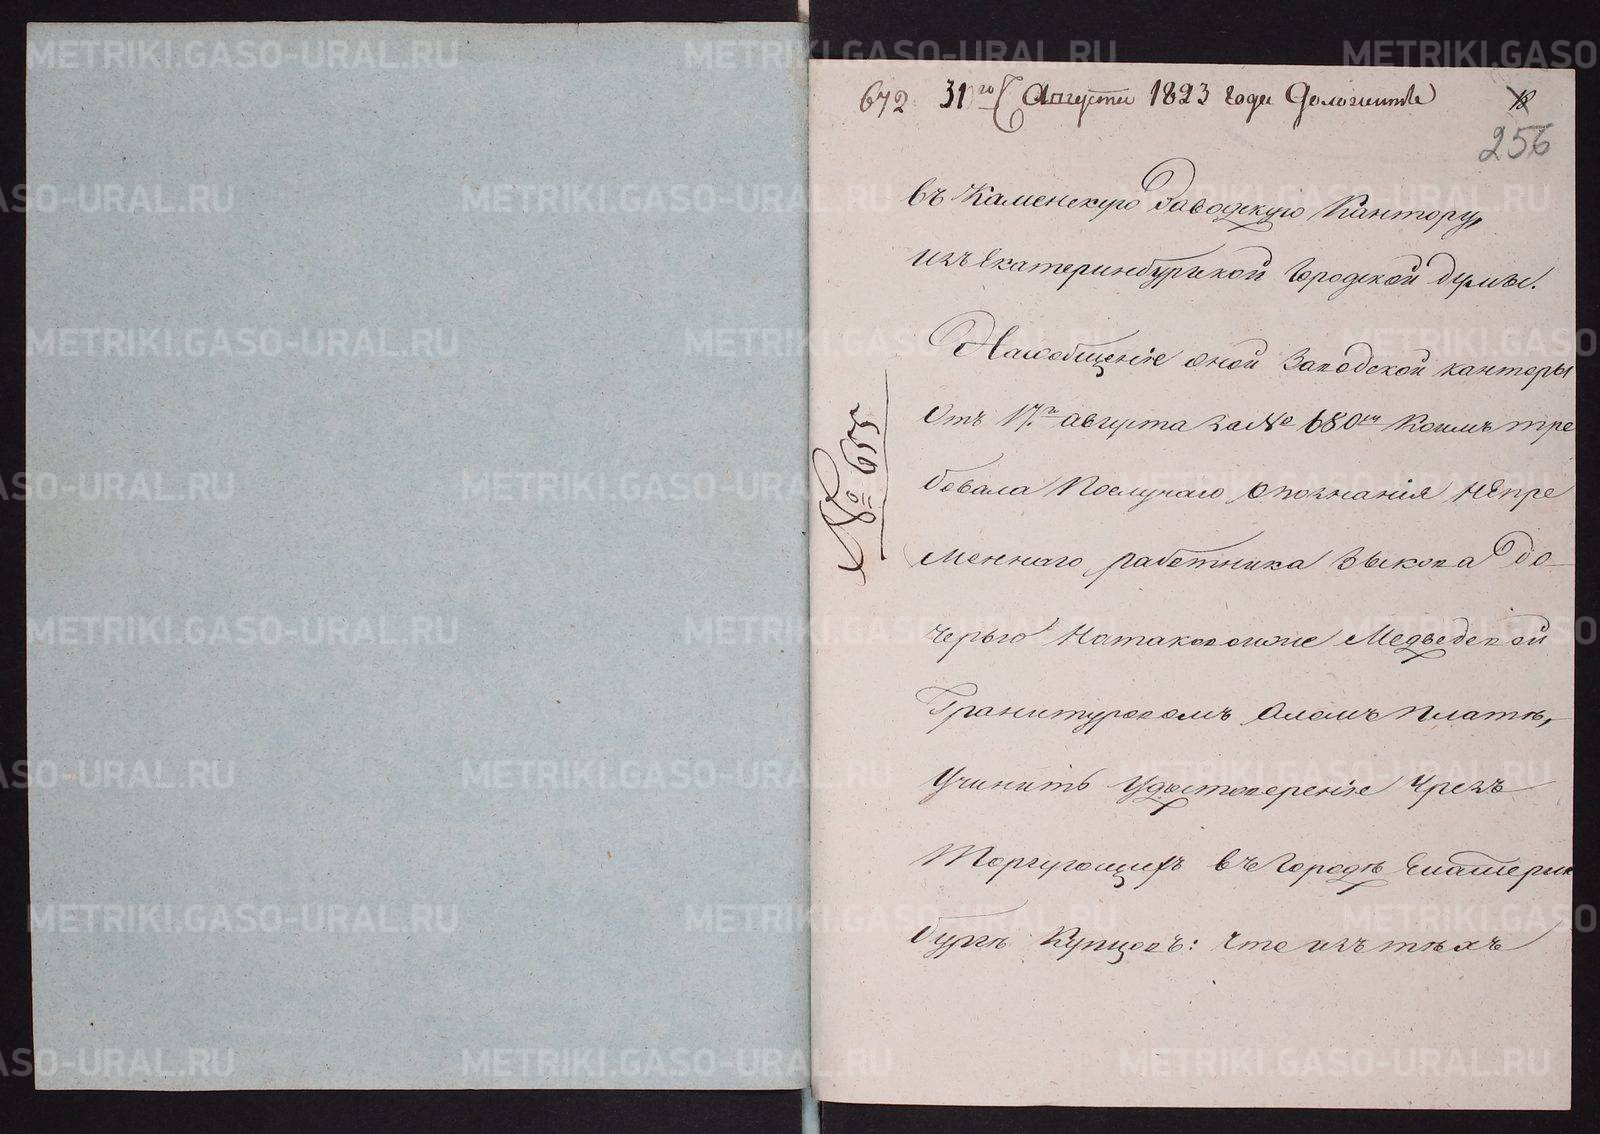 672 31го Августа 1823 года Доложить
18
256
въ Каменскую Заводскую Кантору,
изъ Екатеринбургской Городской думы.
На сообщенiе оной Заводской канторы
№ 655
Отъ 17.го августа за № 680мъ Коимъ тре
бовала Послучаю опознанiя Непре
меннаго работника Зыкова До-
черью Натаковомже Медведской
Гранитуровомъ Аломъ платѣ,
Учинить Удостоверенiе Чрезъ
Торгующихъ въ Городѣ Екатерин
бургѣ Купцовъ: что изъ тѣхъ
METRIKI.GASO-URAL.RU